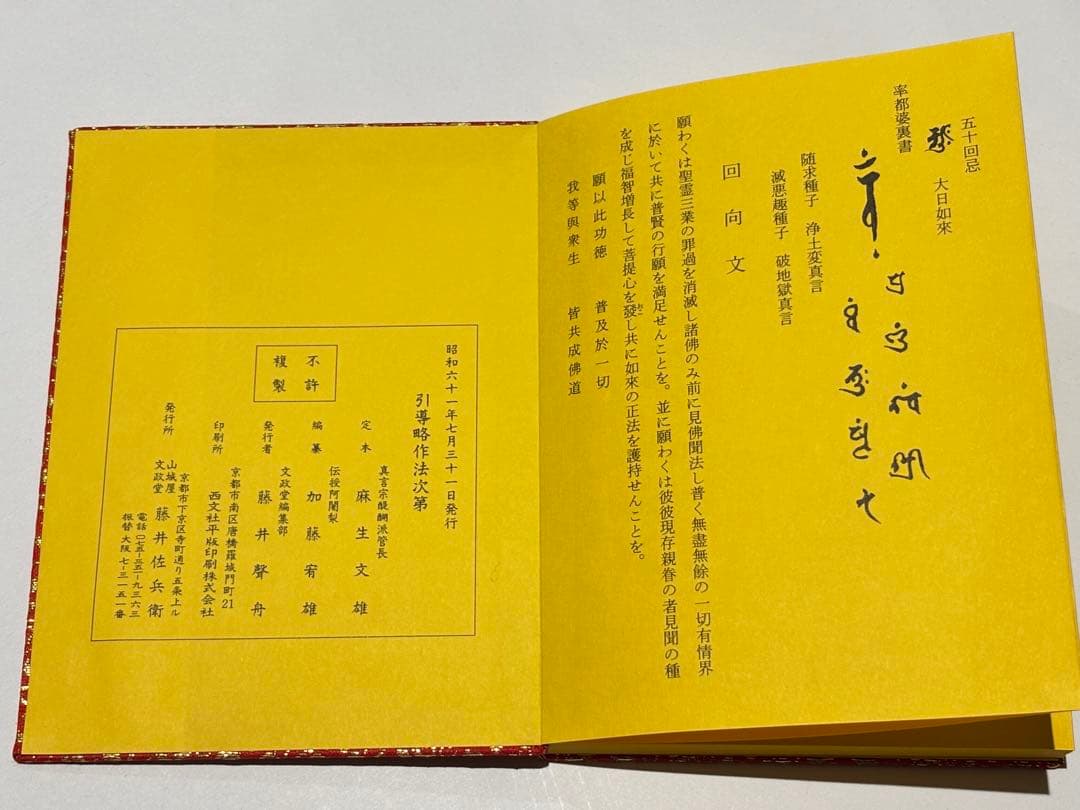 五十回忌
大日如來
率都婆裏書
随求種子　浄土変真言
滅悪趣種子　破地獄真言
回向文
願わくは聖霊三業の罪過を消滅し諸佛のみ前に見佛聞法し普く無盡無餘の一切有情界
に於いて共に普賢の行願を満足せんことを。並に願わくは彼彼現存親眷の者見聞の種
を成じ福智増長して菩提心を發し共に如來の正法を護持せんことを。
願以此功徳　普及於一切
我等與衆生　皆共成佛道
昭和六十一年七月三十一日発行
引導略作法次第
不許
複製
定本　真言宗醍醐派管長
麻生文雄
編纂　伝授阿闍梨
加藤宥雄
文政堂編集部
発行者　藤井聲舟
京都市南区唐橋羅城門町21
印刷所　西文社平版印刷株式会社
京都市下京区寺町通り五条上ル
発行所　山城屋
文政堂　藤井佐兵衛
電話〇七五-三五一-九三六三
振替大阪七-三一五一番